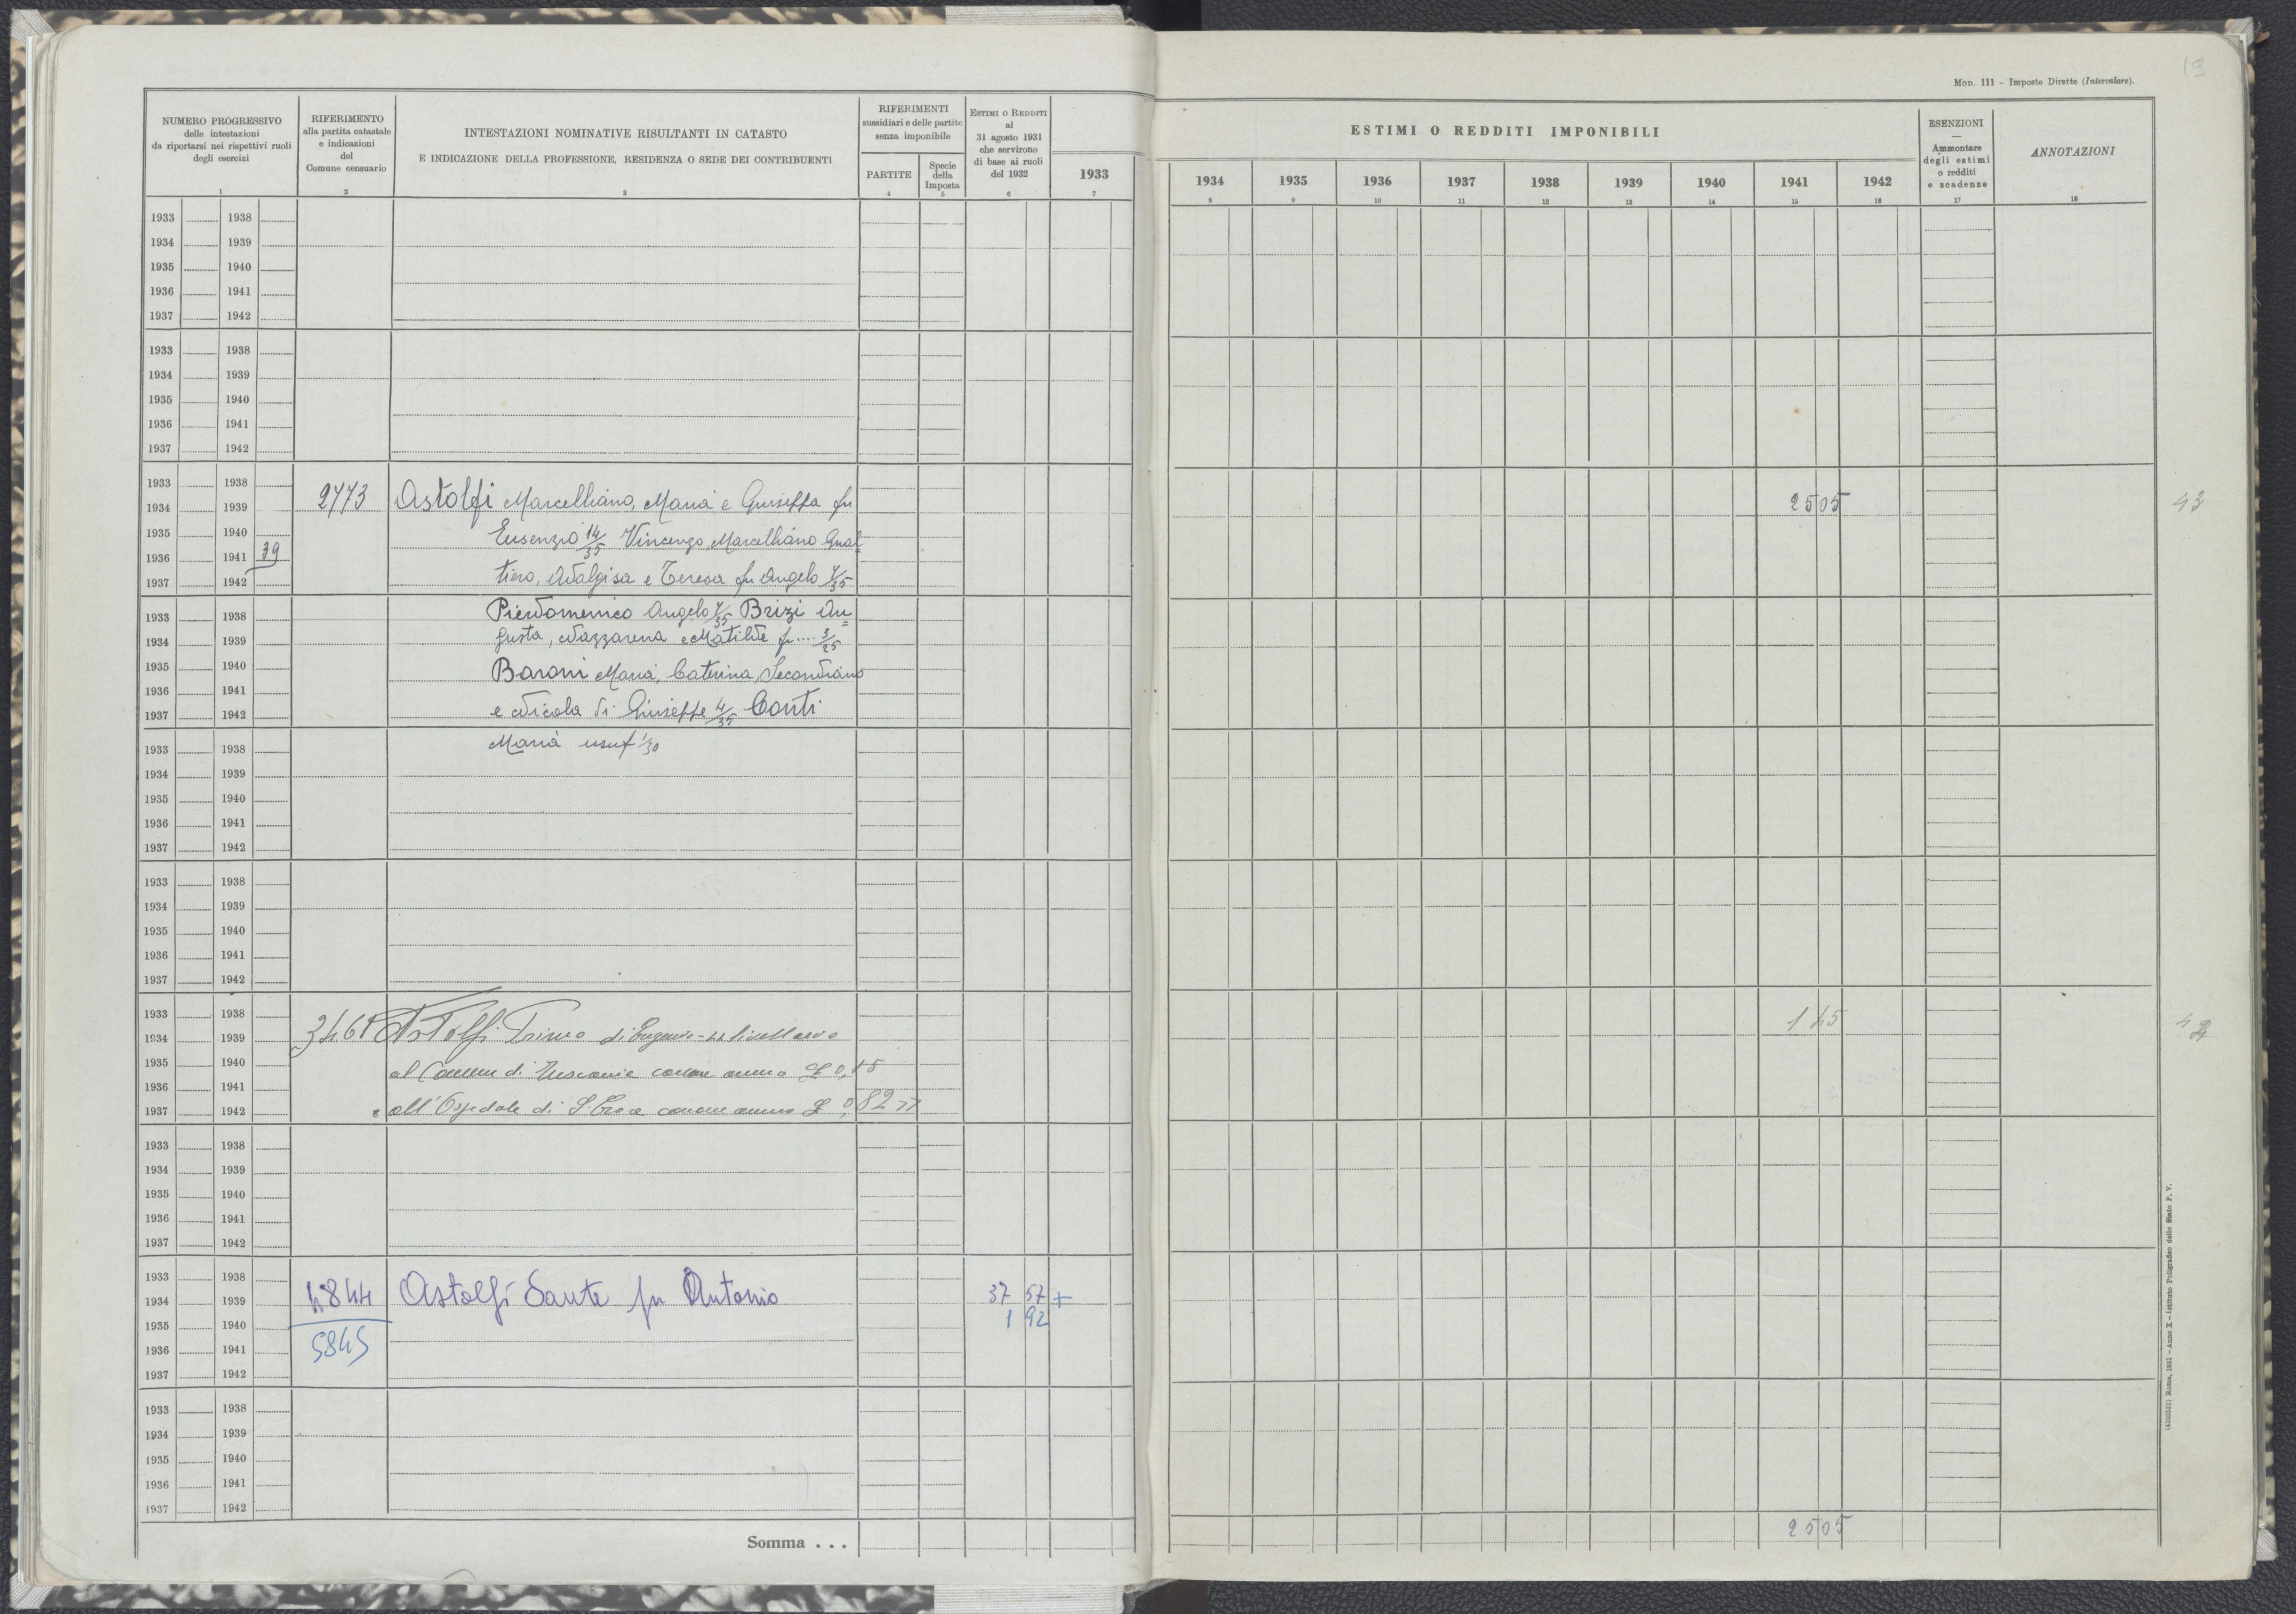 Mod. 111 - Imposte Dirette (Intercalare).
NUMERO PROGRESSIVO
delle intestazioni
da riportarsi nei rispettivi ruoli
degli esercizi
1
RIFERIMENTO
alla partita catastale
e indicazioni
del
Comune censuario
2
INTESTAZIONI NOMINATIVE RISULTANTI IN CATASTO
E INDICAZIONE DELLA PROFESSIONE, RESIDENZA O SEDE DEI CONTRIBUENTI
3
RIFERIMENTI
sussidiari e delle partite
senza imponibile
PARTITE
4
Specie
della
Imposta
5
ESTIMI O REDDITI
al
31 agosto 1931
che servirono
di base ai ruoli
del 1932
6
1933
7
ESTIMI O REDDITI IMPONIBILI
1934 1935 1936 1937 1938 1939 1940 1941 1942
8 9 10 11 12 13 14 15 16
ESENZIONI
—
Ammontare
degli estimi
o redditi
e scadenze
17
ANNOTAZIONI
18
1933 1938
1934 1939
1935 1940
1936 1941
1937 1942
1933 1938
1934 1939
1935 1940
1936 1941
1937 1942
1933 1938
1934 1939 2773 Astolfi Marcelliano, Maria e Giuseppa fu 2505 43
1935 1940 Eusenzio 14/35 Vincenzo, Marcelliano Gual=
1936 1941 39
1937 1942 tiero, Adalgisa e Teresa fu Angelo 7/35
1933 1938 Pierdomenico Angelo 7/35 Brizi Au=
1934 1939 gusta, Nazzarena e Matilde fu .... 3/35
1935 1940 Baroni Maria, Caterina, Secondiano
1936 1941
1937 1942 e Nicola di Giuseppe 4/35 Conti
1933 1938 Maria usuf 1/30
1934 1939
1935 1940
1936 1941
1937 1942
1933 1938
1934 1939
1935 1940
1936 1941
1937 1942
1933 1938
1934 1939 Astolfi di livellario
1935 1940 al Comune di canone annuo £ 0,
1936 1941
1937 1942 e all'Ospedale di S. Croce canone annuo £ 0,82
1933 1938
1934 1939
1935 1940
1936 1941
1937 1942
1933 1938
1934 1939 4844 Astolfi Sante fu Antonio 37 57 +
1935 1940 1 92
1936 1941 5845
1937 1942
1933 1938
1934 1939
1935 1940
1936 1941
1937 1942
Somma . . . 2505
Roma, 1931 - Anno X - Istituto Poligrafico dello Stato P. V.